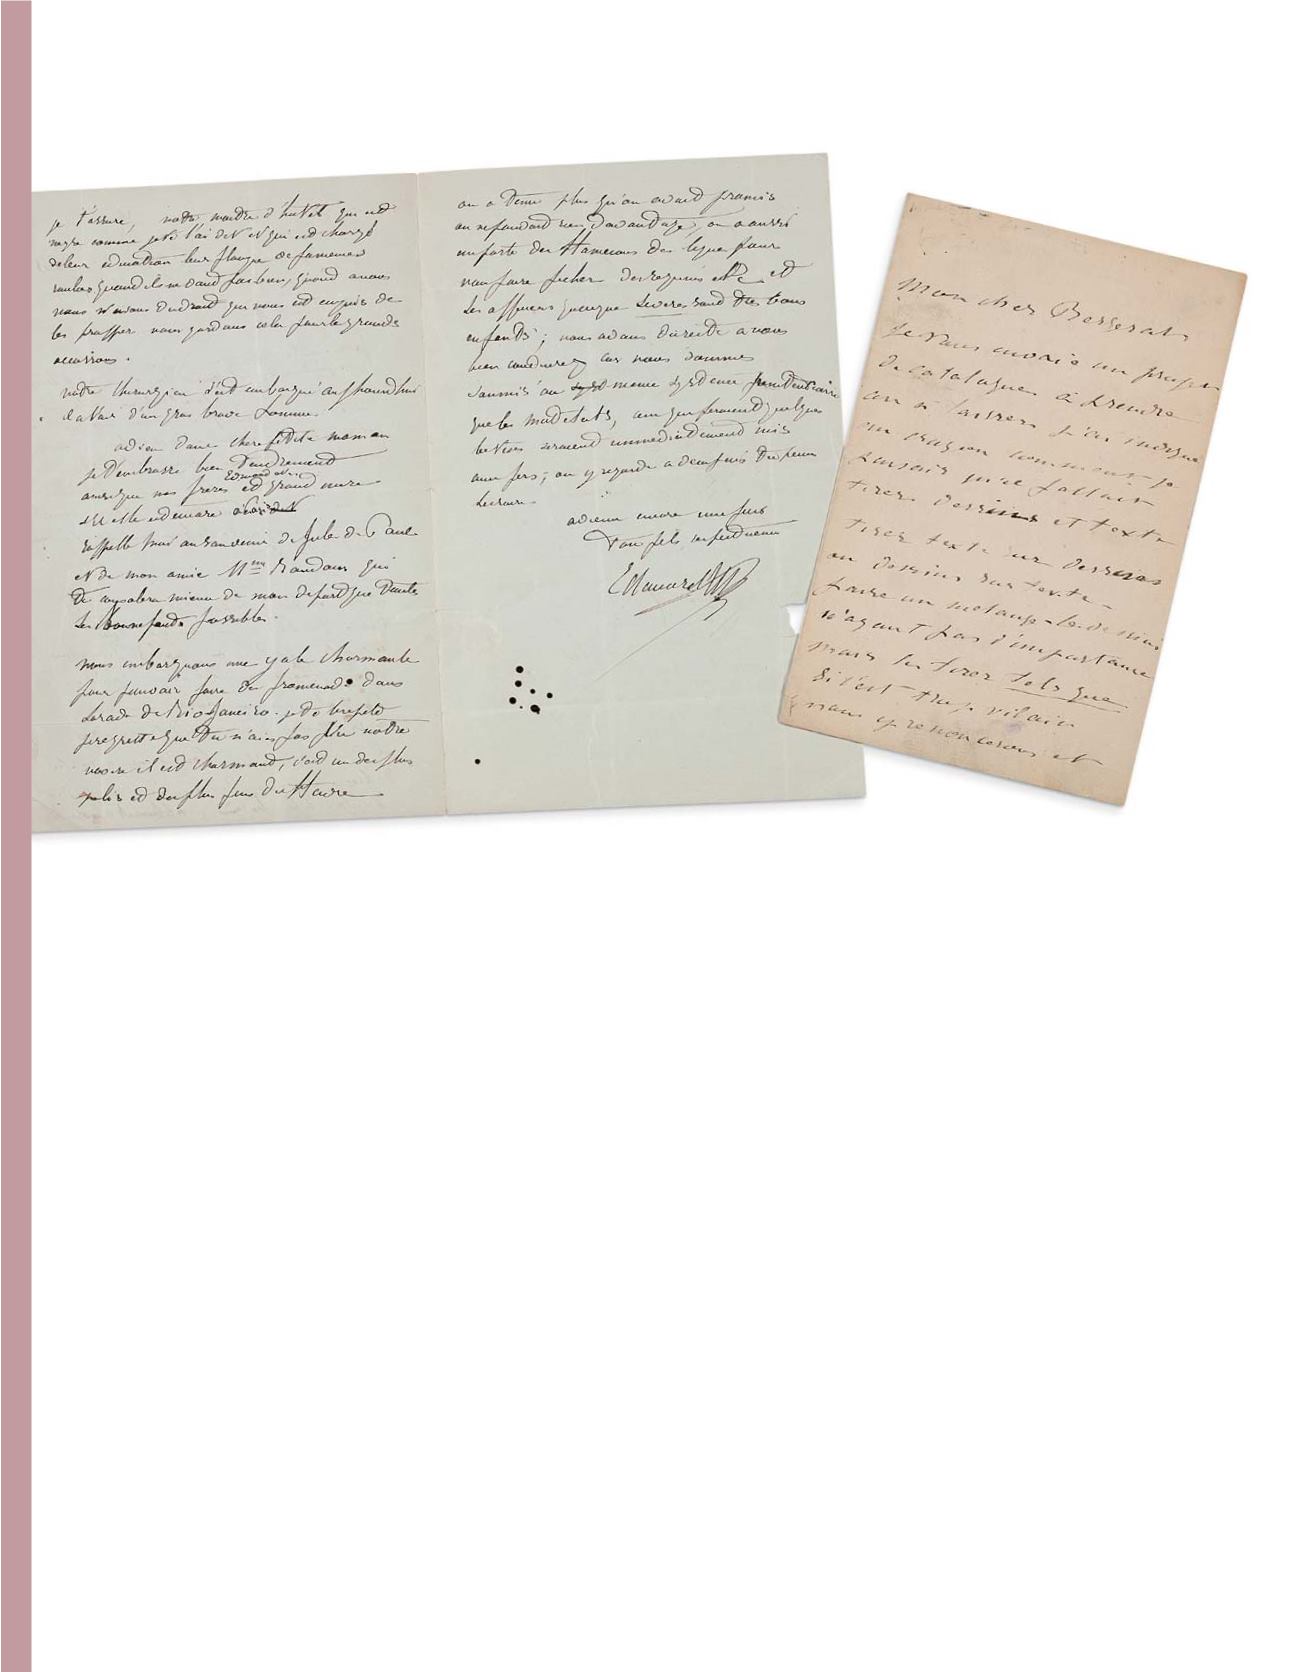 je t'assure, notre maître d'hôtel qui est
nègre comme je te l'ai dit et qui est chargé
de leur education leur flanque de fameuses
roulées quand ils ne vont pas bien, quand a nous
nous n'usons du droit qui nous est acquis de
les frapper nous gardons cela pour les grandes
occasions.
notre chirurgien s'est embarqué aujourd'hui
il a l'air d'un gros brave homme.
adieu donc chere petite maman
je t'embrasse bien tendrement
ainsi que mes freres Edmond et grand mere
si elle est encore
rappelle moi au souvenir de Jules de Paul
et de mon amie
te consolera mieux de mon depart que toutes
les
nous embarquons une yole charmante
pour pouvoir faire des promenades dans
la rade de Rio Janeiro. je te le repete
je regrette que tu n'aies pas vu notre
navire il est charmant, c'est un des plus
jolis et des plus fins du Havre
on a tenu plus qu'on avait promis
on repondant rien davantage, on a aussi
emporté des hameçons des lignes pour
nous faire pecher des requins etc et
les officiers quoique severes sont des bons
enfants; nous avons du reste a nous
bien conduire car nous sommes
soumis au meme
que les matelots, ceux qui feraient quelques
betises seraient immediatement mis
aux fers; on y regarde a deux fois
adieu encore une fois
Ton fils respectueux
Edouard M
Mon cher Bergerat
Je vous envoie un projet
de catalogue à prendre
ou à laisser j'ai indiqué
au crayon comment je
pensais qu'il fallait
tirer dessins et texte
tirer texte sur dessins
ou dessins sur texte -
faire un melange - le dessin
n'ayant pas d'importance
mais le tirer tels que
si c'est trop vilain
nous y renoncerons et